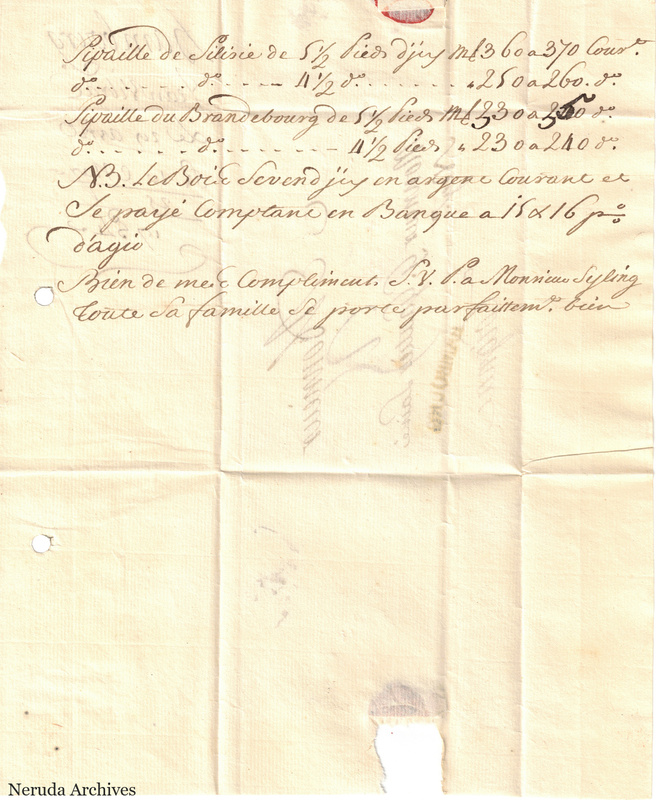 Pipaille de Silisie de 5 1/2 Pieds d'icy M£ 360 a 370 Cour.t
d.o - - - - - d.o - - - - - 4 1/2 d.o - - - - - - - " 250 a 260. d.o
Pipaille du Brandebourg de 5 1/2 Pieds M£ 230 a 250 d.o
d.o - - - - - - - d.o - - - - - - - - - 4 1/2 Pieds " 230 a 240 d.o
N.B. Le Bois Se vend jcy en argent Courant et
Se payé Comptant en Banque a 15 & 16 p%
d'agio
Bien de mes Compliments S. V. P. a Monsieur
Toute Sa famille Se porte parfaittem.t bien
Neruda Archives